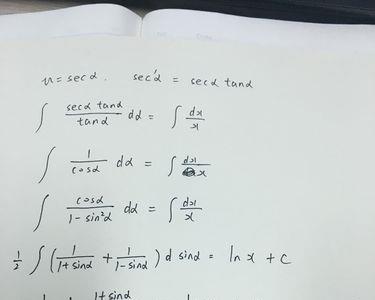 u = secα. sec'α = secα tanα
∫ secα tanα / tanα dα = ∫ dx / x
∫ 1 / cosα dα = ∫ dx / x
∫ cosα / 1 - sin²α dα = ∫ dx / x
1/2 ∫ ( 1 / 1+sinα + 1 / 1-sinα ) d sinα = ln x + C
1+sinα